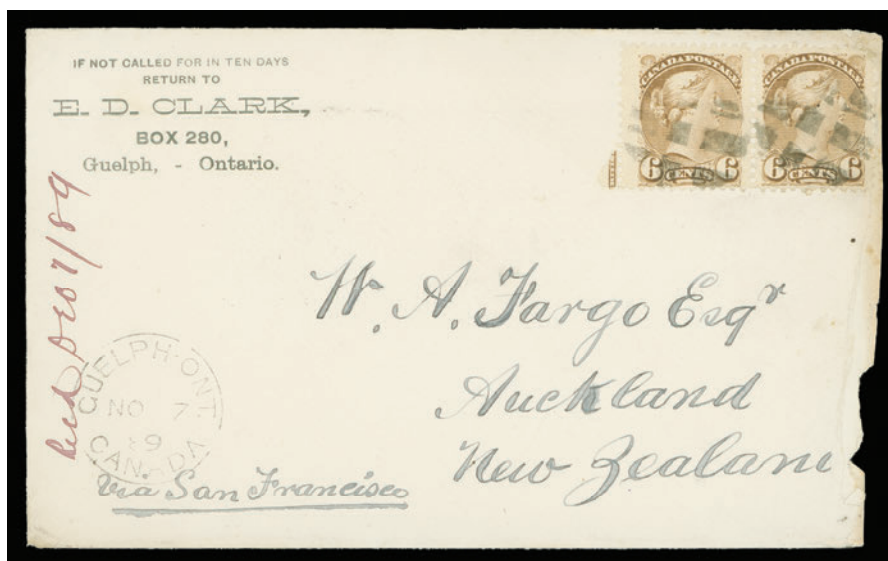 IF NOT CALLED FOR IN TEN DAYS
RETURN TO
E. D. CLARK,
BOX 280,
Guelph, - Ontario.
CANADA POSTAGE
6 CENTS 6
CANADA POSTAGE
6 CENTS 6
Recd Dec 7/89
W. A. Fargo Esqr
Auckland
New Zealand
GUELPH·ONT.
NO 7
89
CANADA
Via San Francisco